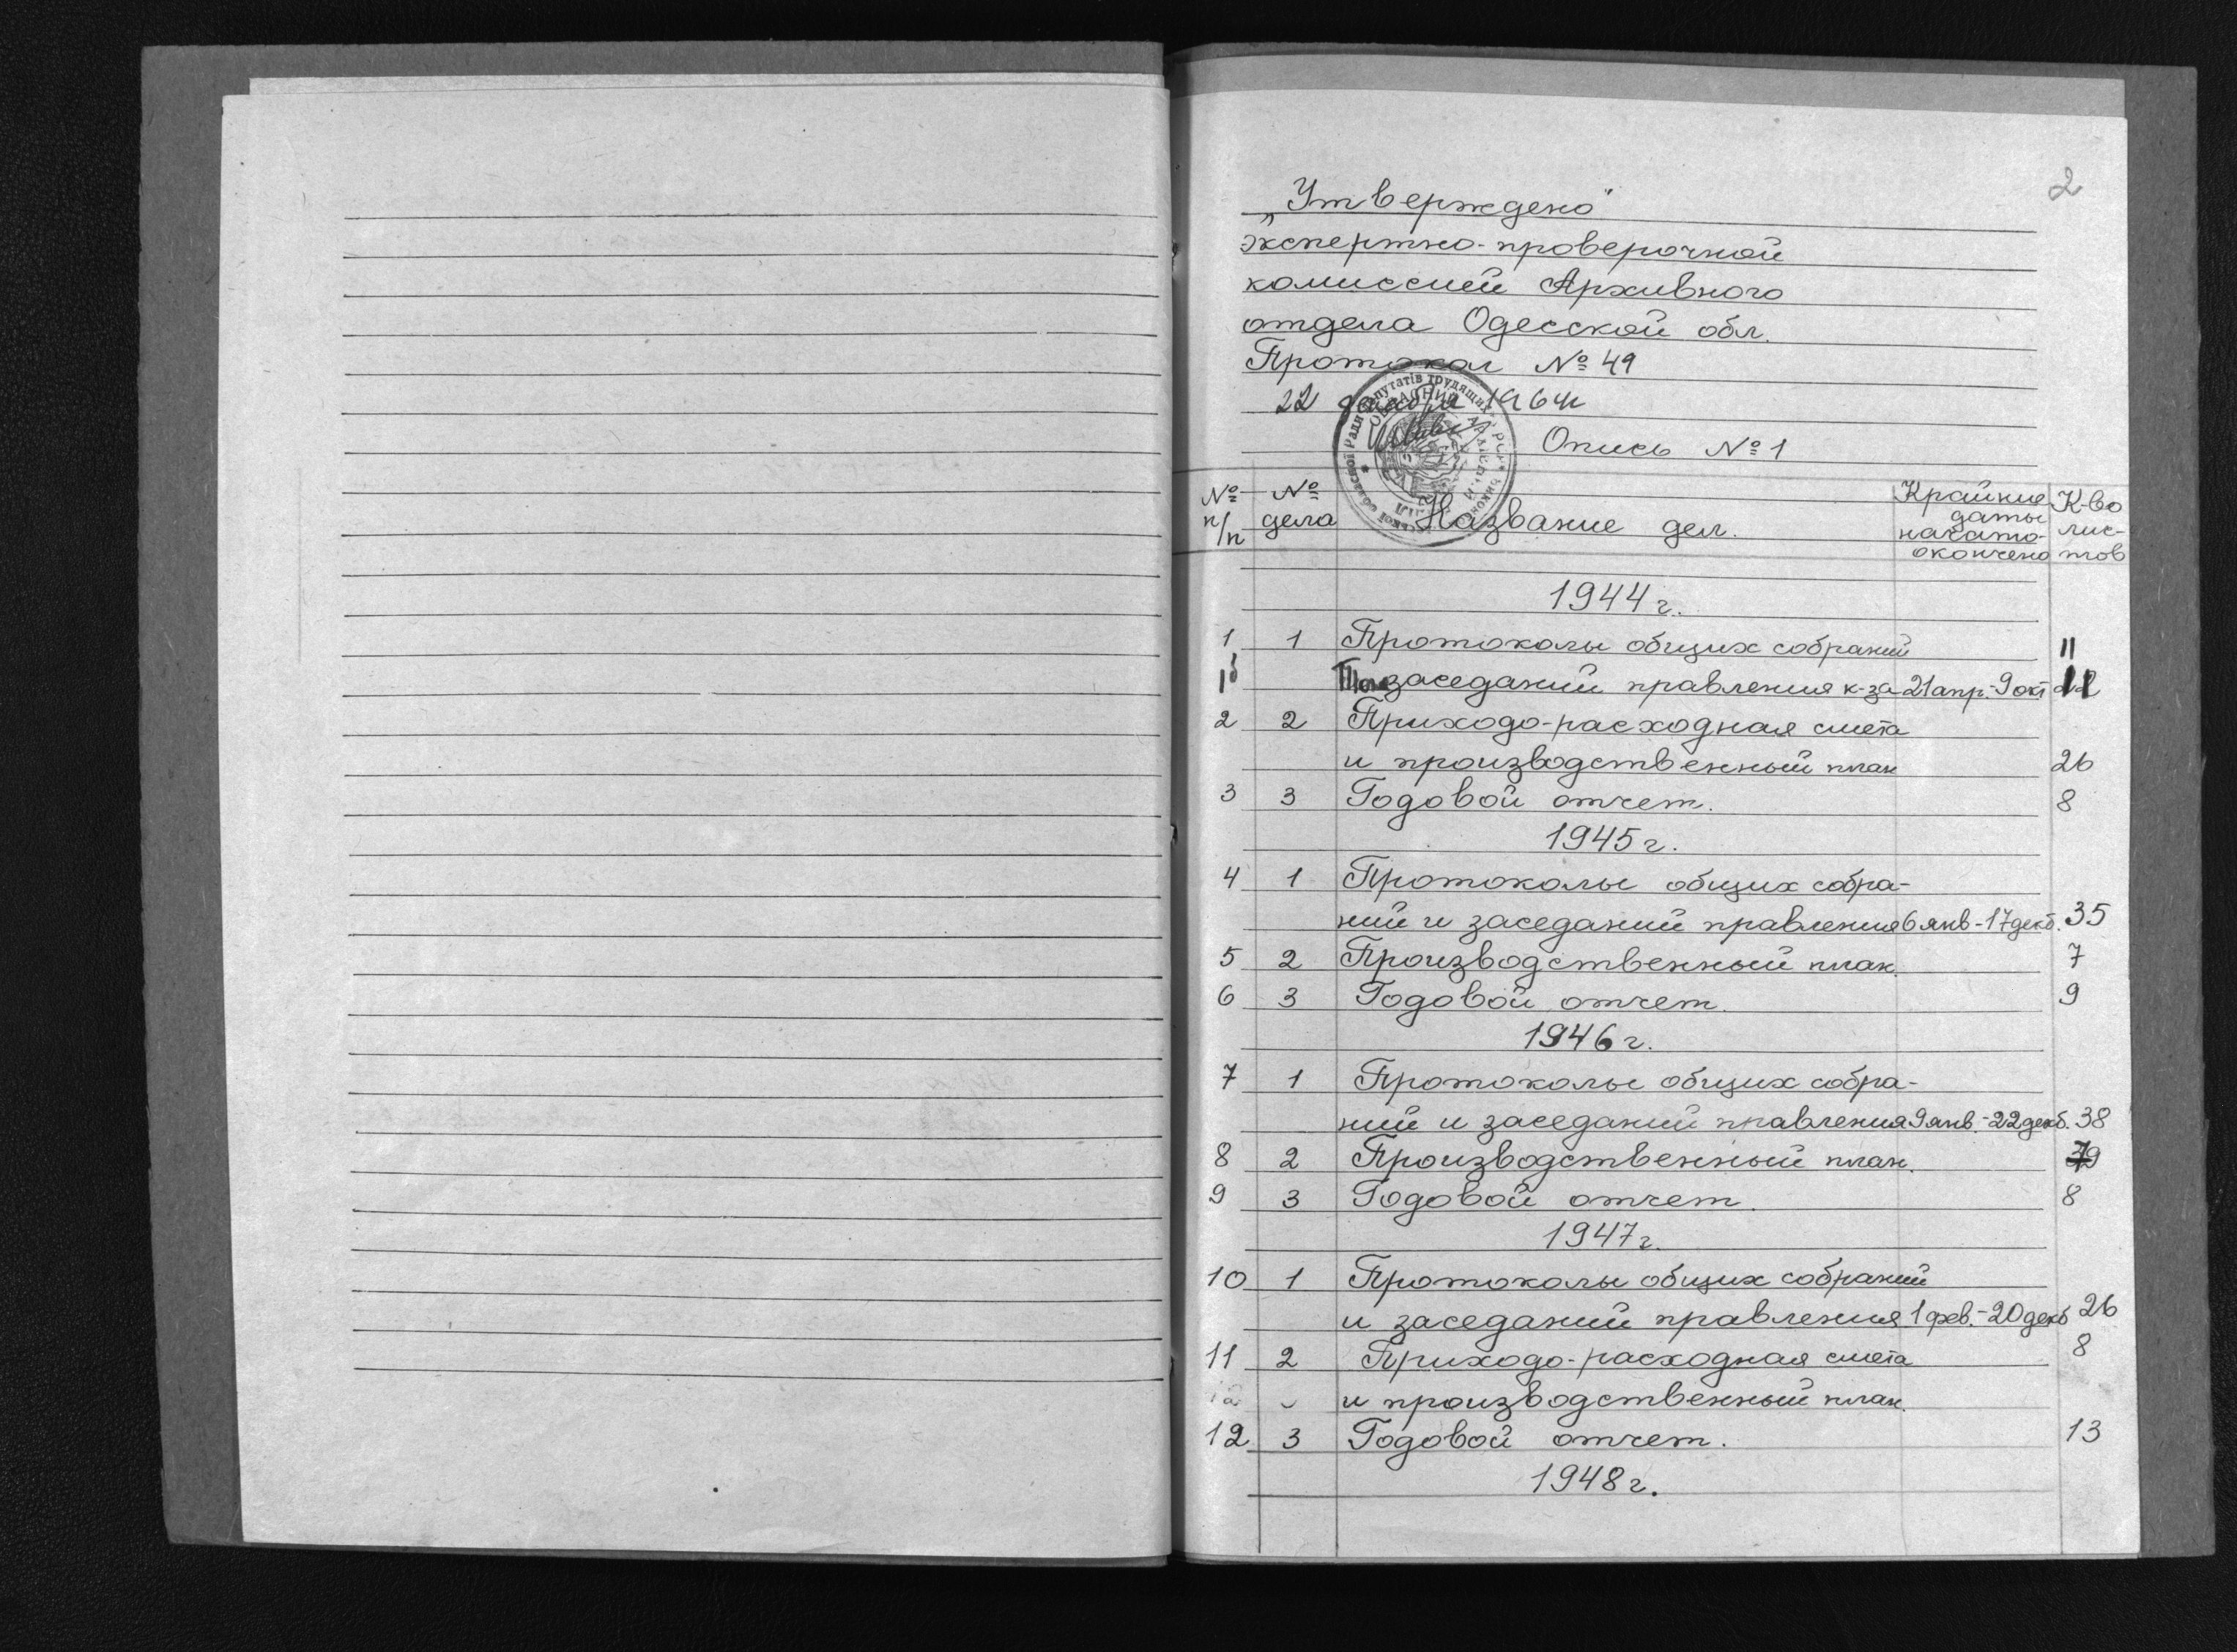 2
„Утверждено"
экспертно-проверочной
комиссией Архивного
отдела Одесской обл.
Протокол № 49
22 декабря 1964
Опись № 1
№ п/п № дела Название дел. Крайние даты начато-окончено К-во лис-тов
1944 г.
1 1 Протоколы общих собраний 11
1б заседаний правления к-за 21 апр.-9 окт 11
2 2 Приходо-расходная смета
и производственный план 26
3 3 Годовой отчет. 8
1945 г.
4 1 Протоколы общих собра-
ний и заседаний правления 6 янв-17 декб. 35
5 2 Производственный план. 7
6 3 Годовой отчет. 9
1946 г.
7 1 Протоколы общих собра-
ний и заседаний правления 9 янв.-22 декб. 38
8 2 Производственный план.
9 3 Годовой отчет. 8
1947 г.
10 1 Протоколы общих собраний
и заседаний правления 1 фев.-20 декб 26
11 2 Приходо-расходная смета 8
и производственный план.
12 3 Годовой отчет. 13
1948 г.